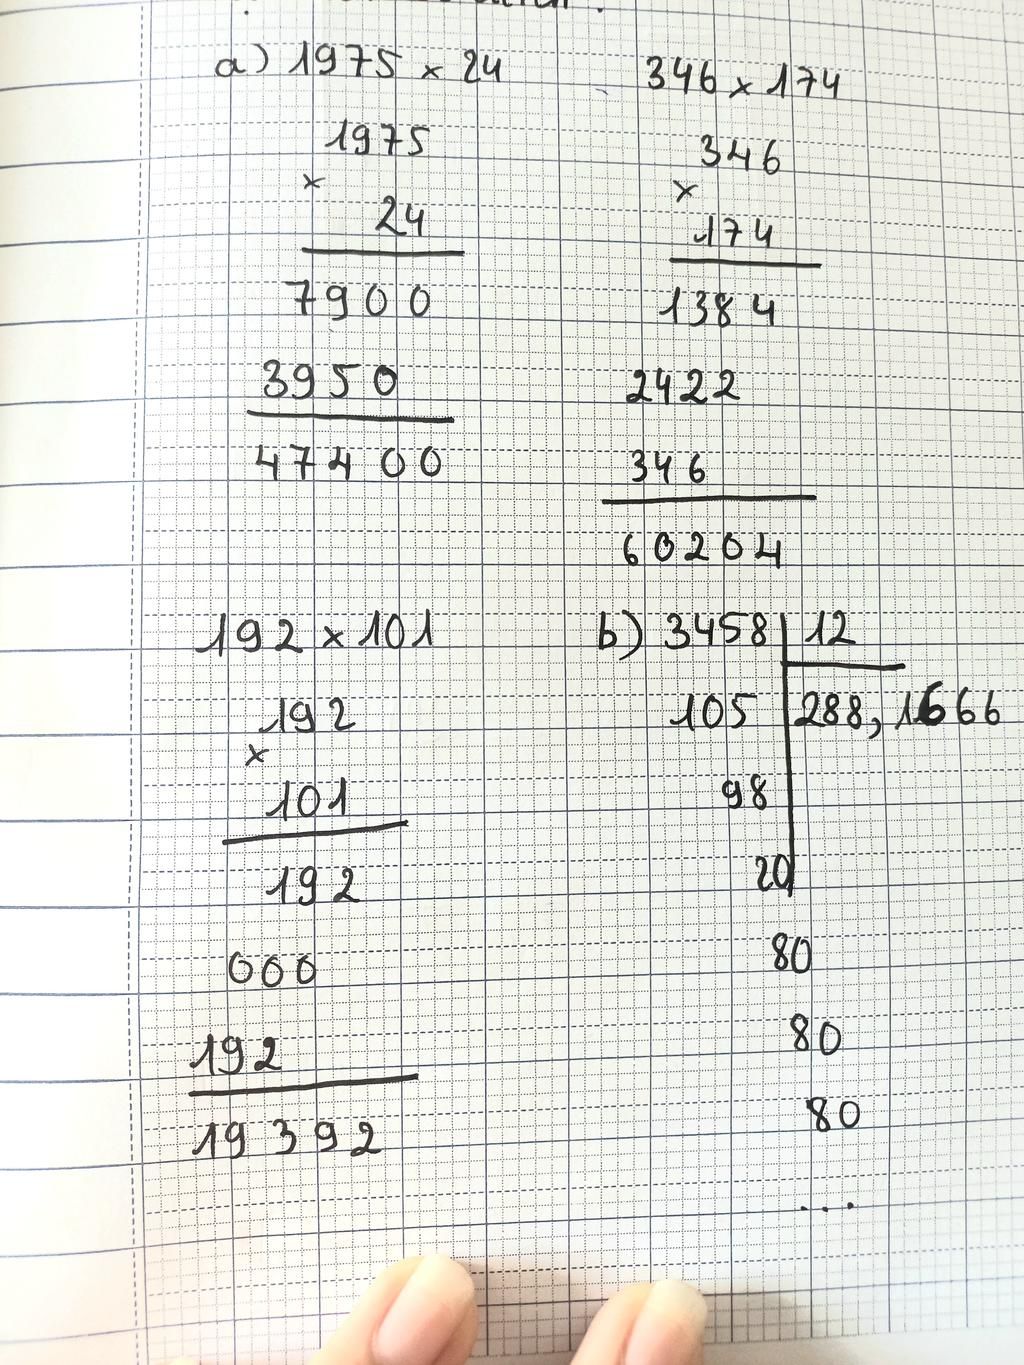 a) 1975 x 24
1975
x
24
7900
3950
47400
346 x 174
346
x
174
1384
2422
346
60204
192 x 101
192
x
101
192
000
192
19392
b) 3458 12
105 288,1666
98
20
80
80
80
...